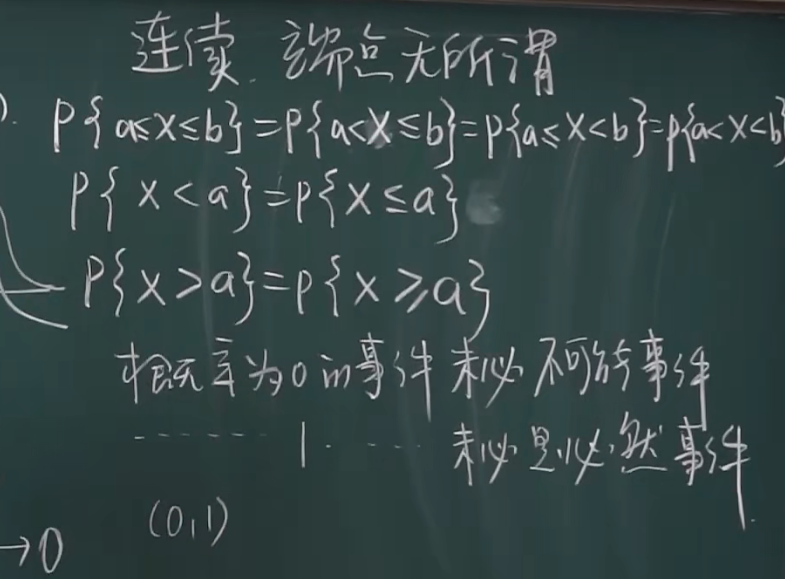 连续. 端点无所谓
). P{a≤X≤b}=P{a<X≤b}=P{a≤X<b}=P{a<X<b}
P{X<a}=P{X≤a}
P{X>a}=P{X≥a}
概率为0的事件 未必不可能事件
------1---- 未必是必然事件
(0,1)
→0